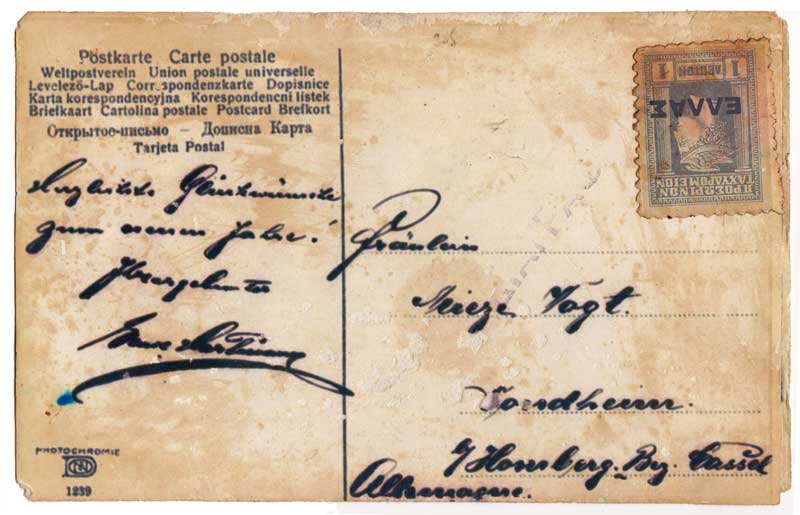 Postkarte Carte postale
Weltpostverein Union postale universelle
Levelező-Lap Correspondenzkarte Dopisnice
Karta korespondencyjna Korespondencni listek
Briefkaart Cartolina postale Postcard Brefkort
Открытое-письмо — Дописна Карта
Tarjeta Postal
Herzlichste Glückwünsche
zum neuen Jahre!
Ihr ergebenster
PHOTOCHROMIE
1239
1 ΛΕΠΤΟΝ 1
ΕΛΛΑΣ
ΠΡΟΣΩΡΙΝΟΝ
ΤΑΧΥΔΡΟΜΕΙΟΝ
Fräulein
Mieze Vogt.
Sondheim.
b/Homberg. Bz. Cassel
Allemagne.